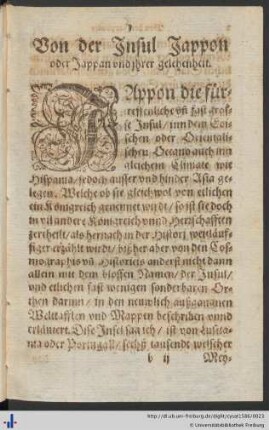 Von der Insul Jappon
oder Jappan vnd jhrer gelegenheit.
Jappon die für-
treffenliche vñ fast gros-
se Insul / inn dem Eoi-
schen oder Orientali-
schen Oceano auch inn
gleichem Climate wie
Hispania, jedoch ausser vnd hinder Asia ge-
legen. Welche ob sie gleich wol von etlichen
ein Königreich genennet wirdt / so ist sie doch
in vil andere Königreich vnnd Herrschafften
zertheilt / als hernach in der Histori weitläuf-
figer erzählt wirdt / biß her aber von den Cos-
mographis vñ Historicis anderst nicht dann
allein mit dem blossen Namen / der Insul /
vnd etlichen fast wenigen sonderbaren Or-
then darinn / in den newlich außgangnen
Welttafflen vnd Mappen beschriben vnnd
erkläret. Dise Insel sag ich / ist von Lusita-
nia oder Portugall / sechß tausendt welscher
b ij Mey-
http://dl.ub.uni-freiburg.de/diglit/cysat1586/0023
© Universitätsbibliothek Freiburg